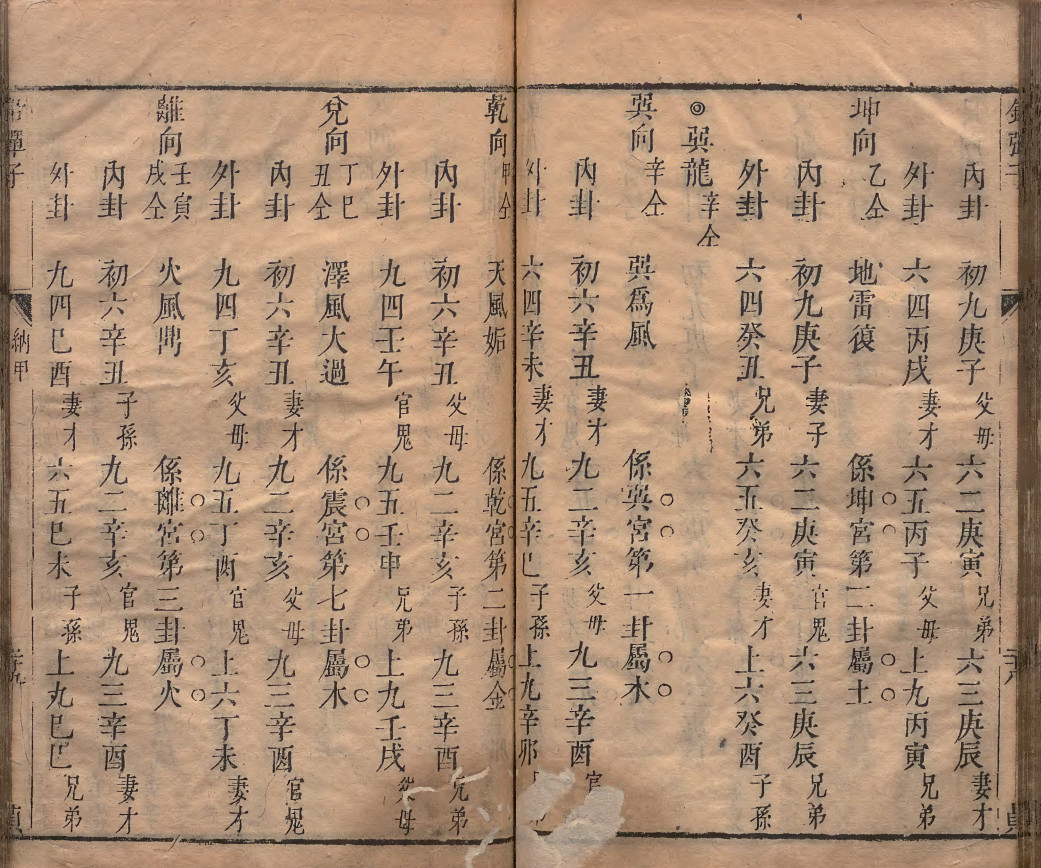 內卦 初九庚子 父母 六二庚寅 兄弟 六三庚辰 妻才
外卦 六四丙戌 妻才 六五丙子 父母 上九丙寅 兄弟
坤向 乙仝 地雷復 係坤宮第二卦屬土
內卦 初九庚子 妻子 六二庚寅 官鬼 六三庚辰 兄弟
外卦 六四癸丑 兄弟 六五癸亥 妻才 上六癸酉 子孫
◎巽龍 辛仝
巽向 辛仝 巽為風 係巽宮第一卦屬木
內卦 初六辛丑 妻才 九二辛亥 父母 九三辛酉 官
外卦 六四辛未 妻才 九五辛巳 子孫 上九辛卯
乾向 甲仝 天風姤 係乾宮第二卦屬金
內卦 初六辛丑 父母 九二辛亥 子孫 九三辛酉 兄弟
外卦 九四壬午 官鬼 九五壬申 兄弟 上九壬戌 父母
兌向 丁巳丑仝 澤風大過 係震宮第七卦屬木
內卦 初六辛丑 妻才 九二辛亥 父母 九三辛酉 官鬼
外卦 九四丁亥 父母 九五丁酉 官鬼 上六丁未 妻才
離向 壬寅戌仝 火風鼎 係離宮第三卦屬火
內卦 初六辛丑 子孫 九二辛亥 官鬼 九三辛酉 妻才
外卦 九四巳酉 妻才 六五巳未 子孫 上九巳巳 兄弟
納甲